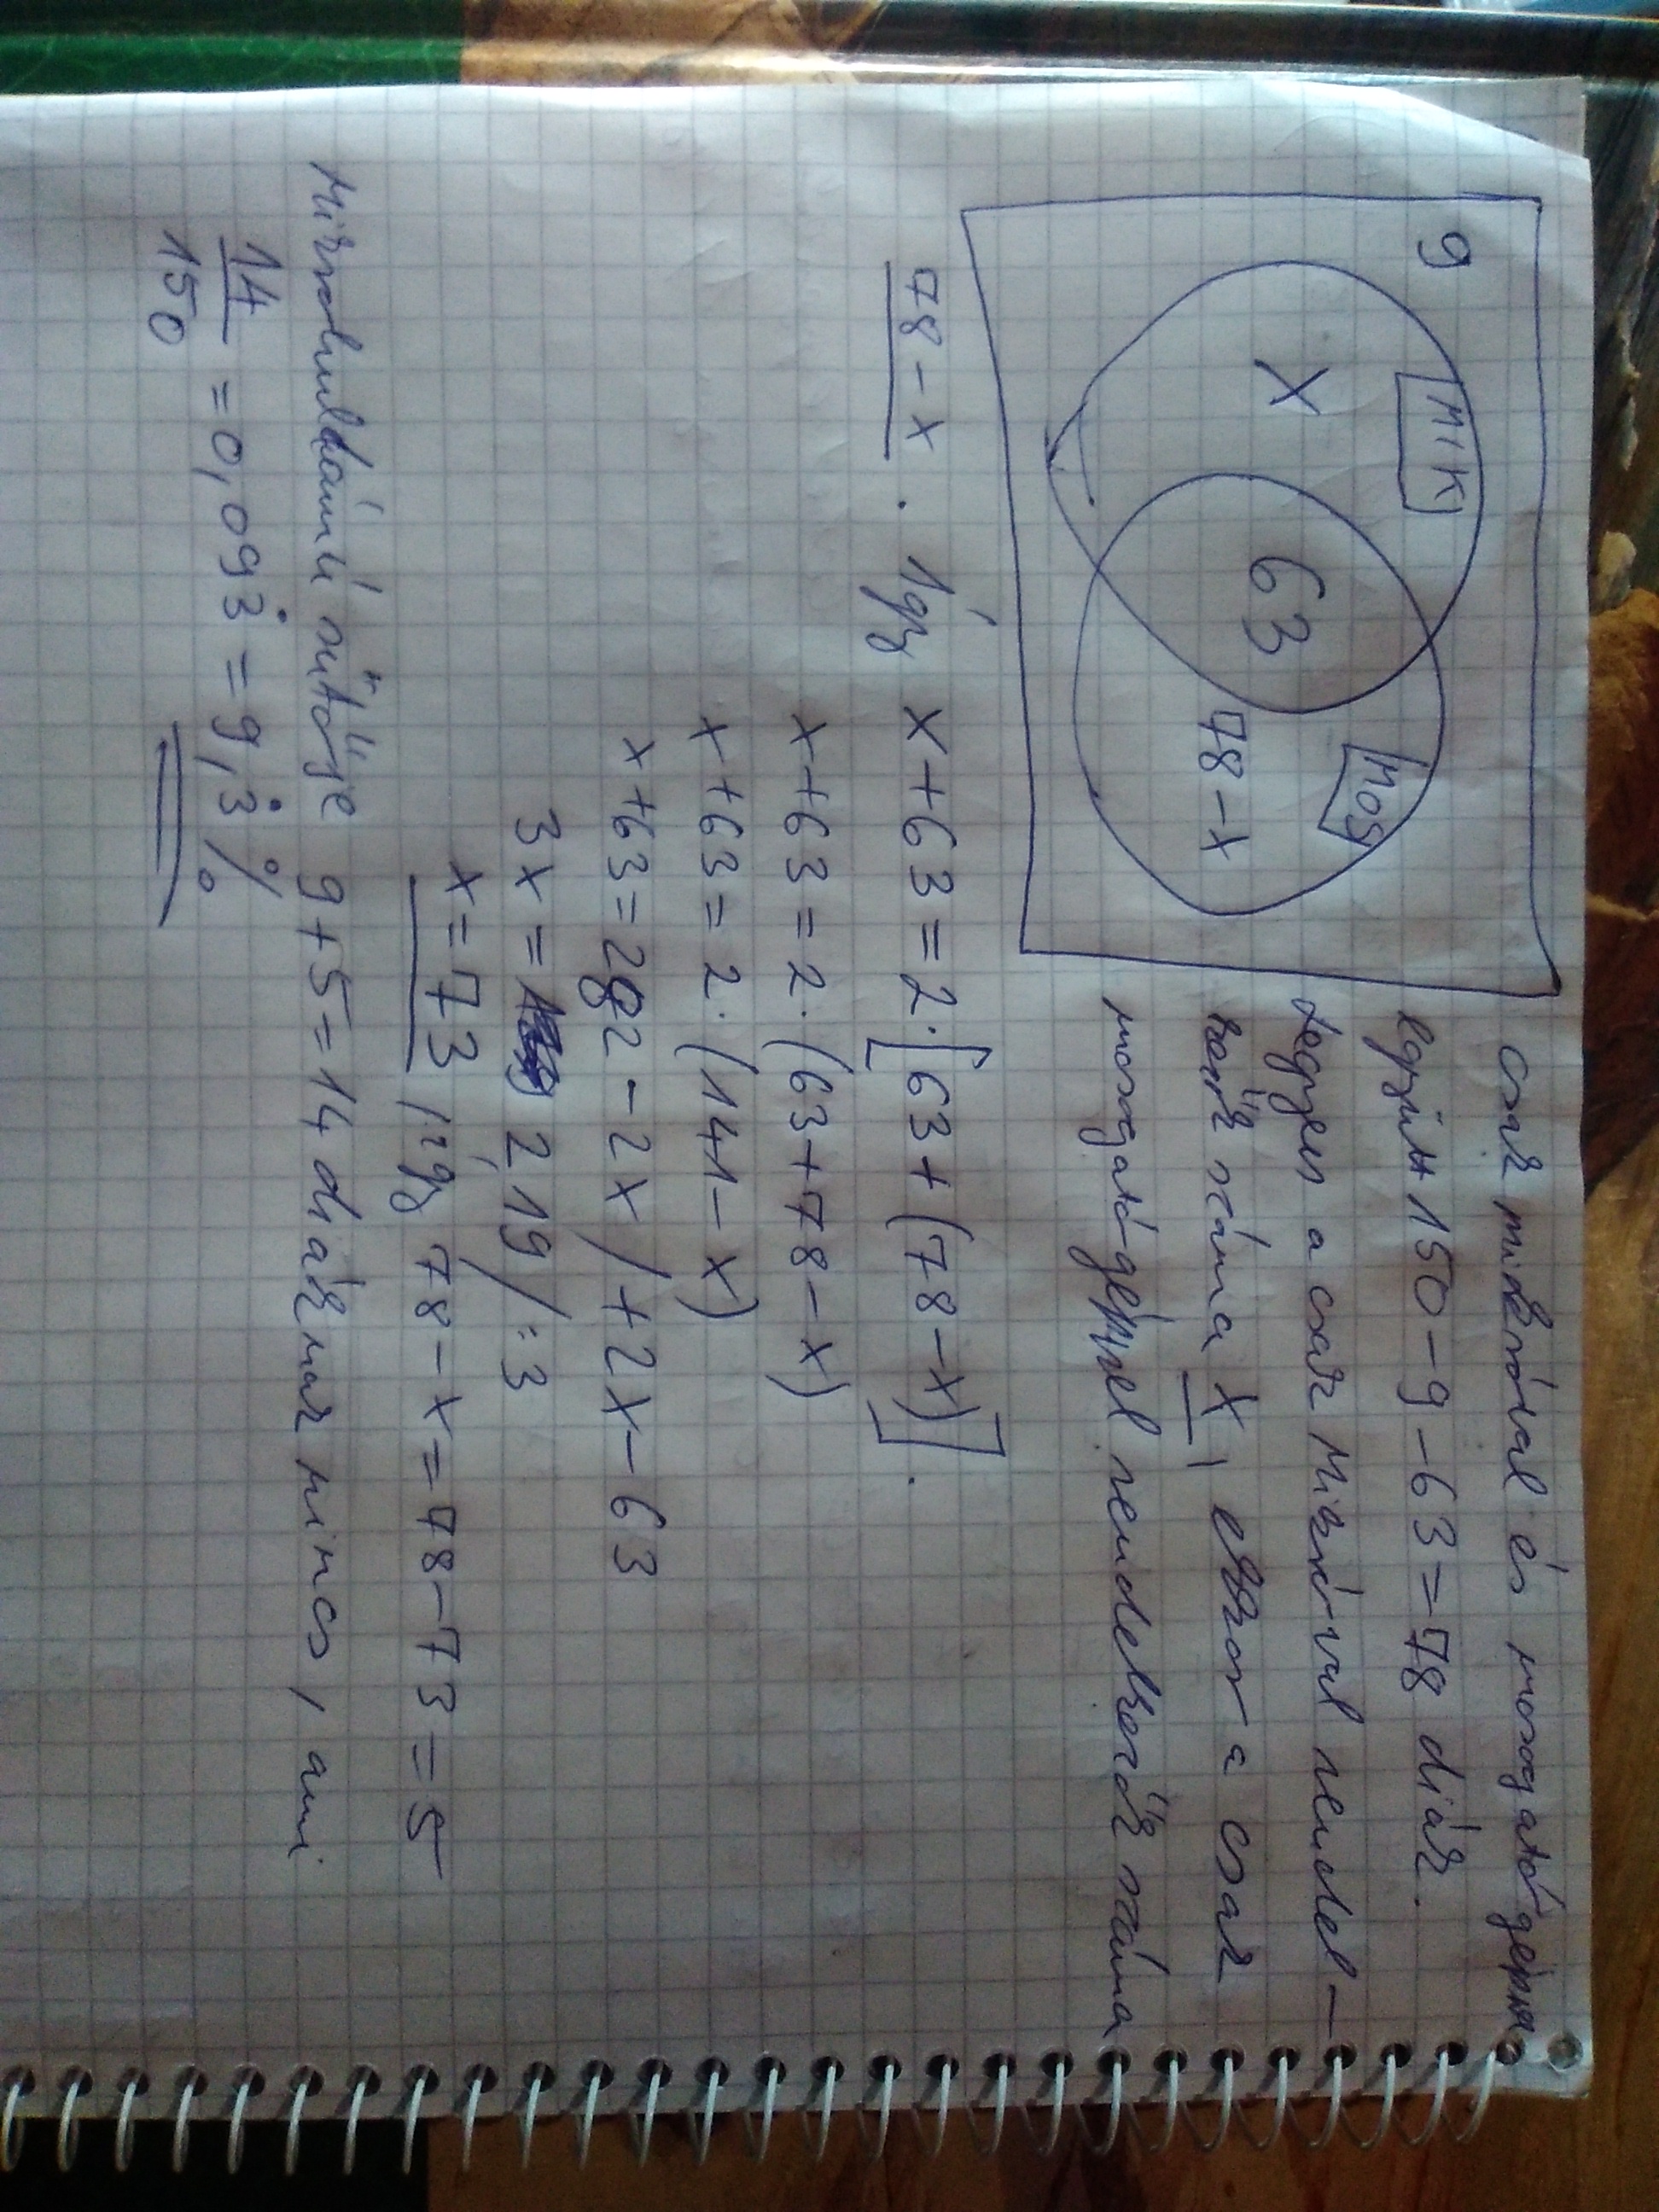 9
MIK
MOS
X
63
78-x
csak mikróval és mosogatógéppel
együtt 150-9-63=78 diák.
Legyen a csak Mikróval rendel-
kezők száma x, ekkor a csak
mosogatógéppel rendelkezők száma
78-x. Így x+63=2·[63+(78-x)].
x+63=2·(63+78-x)
x+63=2·(141-x)
x+63=282-2x /+2x-63
3x=219 /:3
x=73, így 78-x=78-73=5
Mikrohullámú sütője 9+5=14 diáknak nincs, ami
14/150 = 0,093̇ = 9,3̇ %